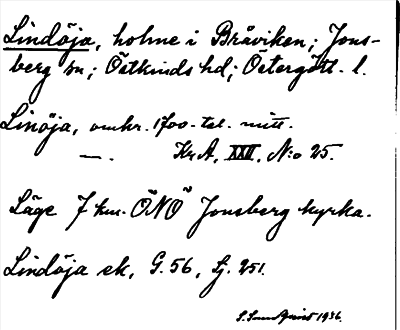 Lindöja, holme i Bråviken; Jons-
berg sn; Östkinds hd; Östergötl. l.
Linöja, omkr. 1700-tal. mitt.
—. Kr A, XXII, N:o 25.
Läge 7 km. ÖNÖ Jonsberg kyrka.
Lindöja ek, G. 56, Lj. 251.
1936.